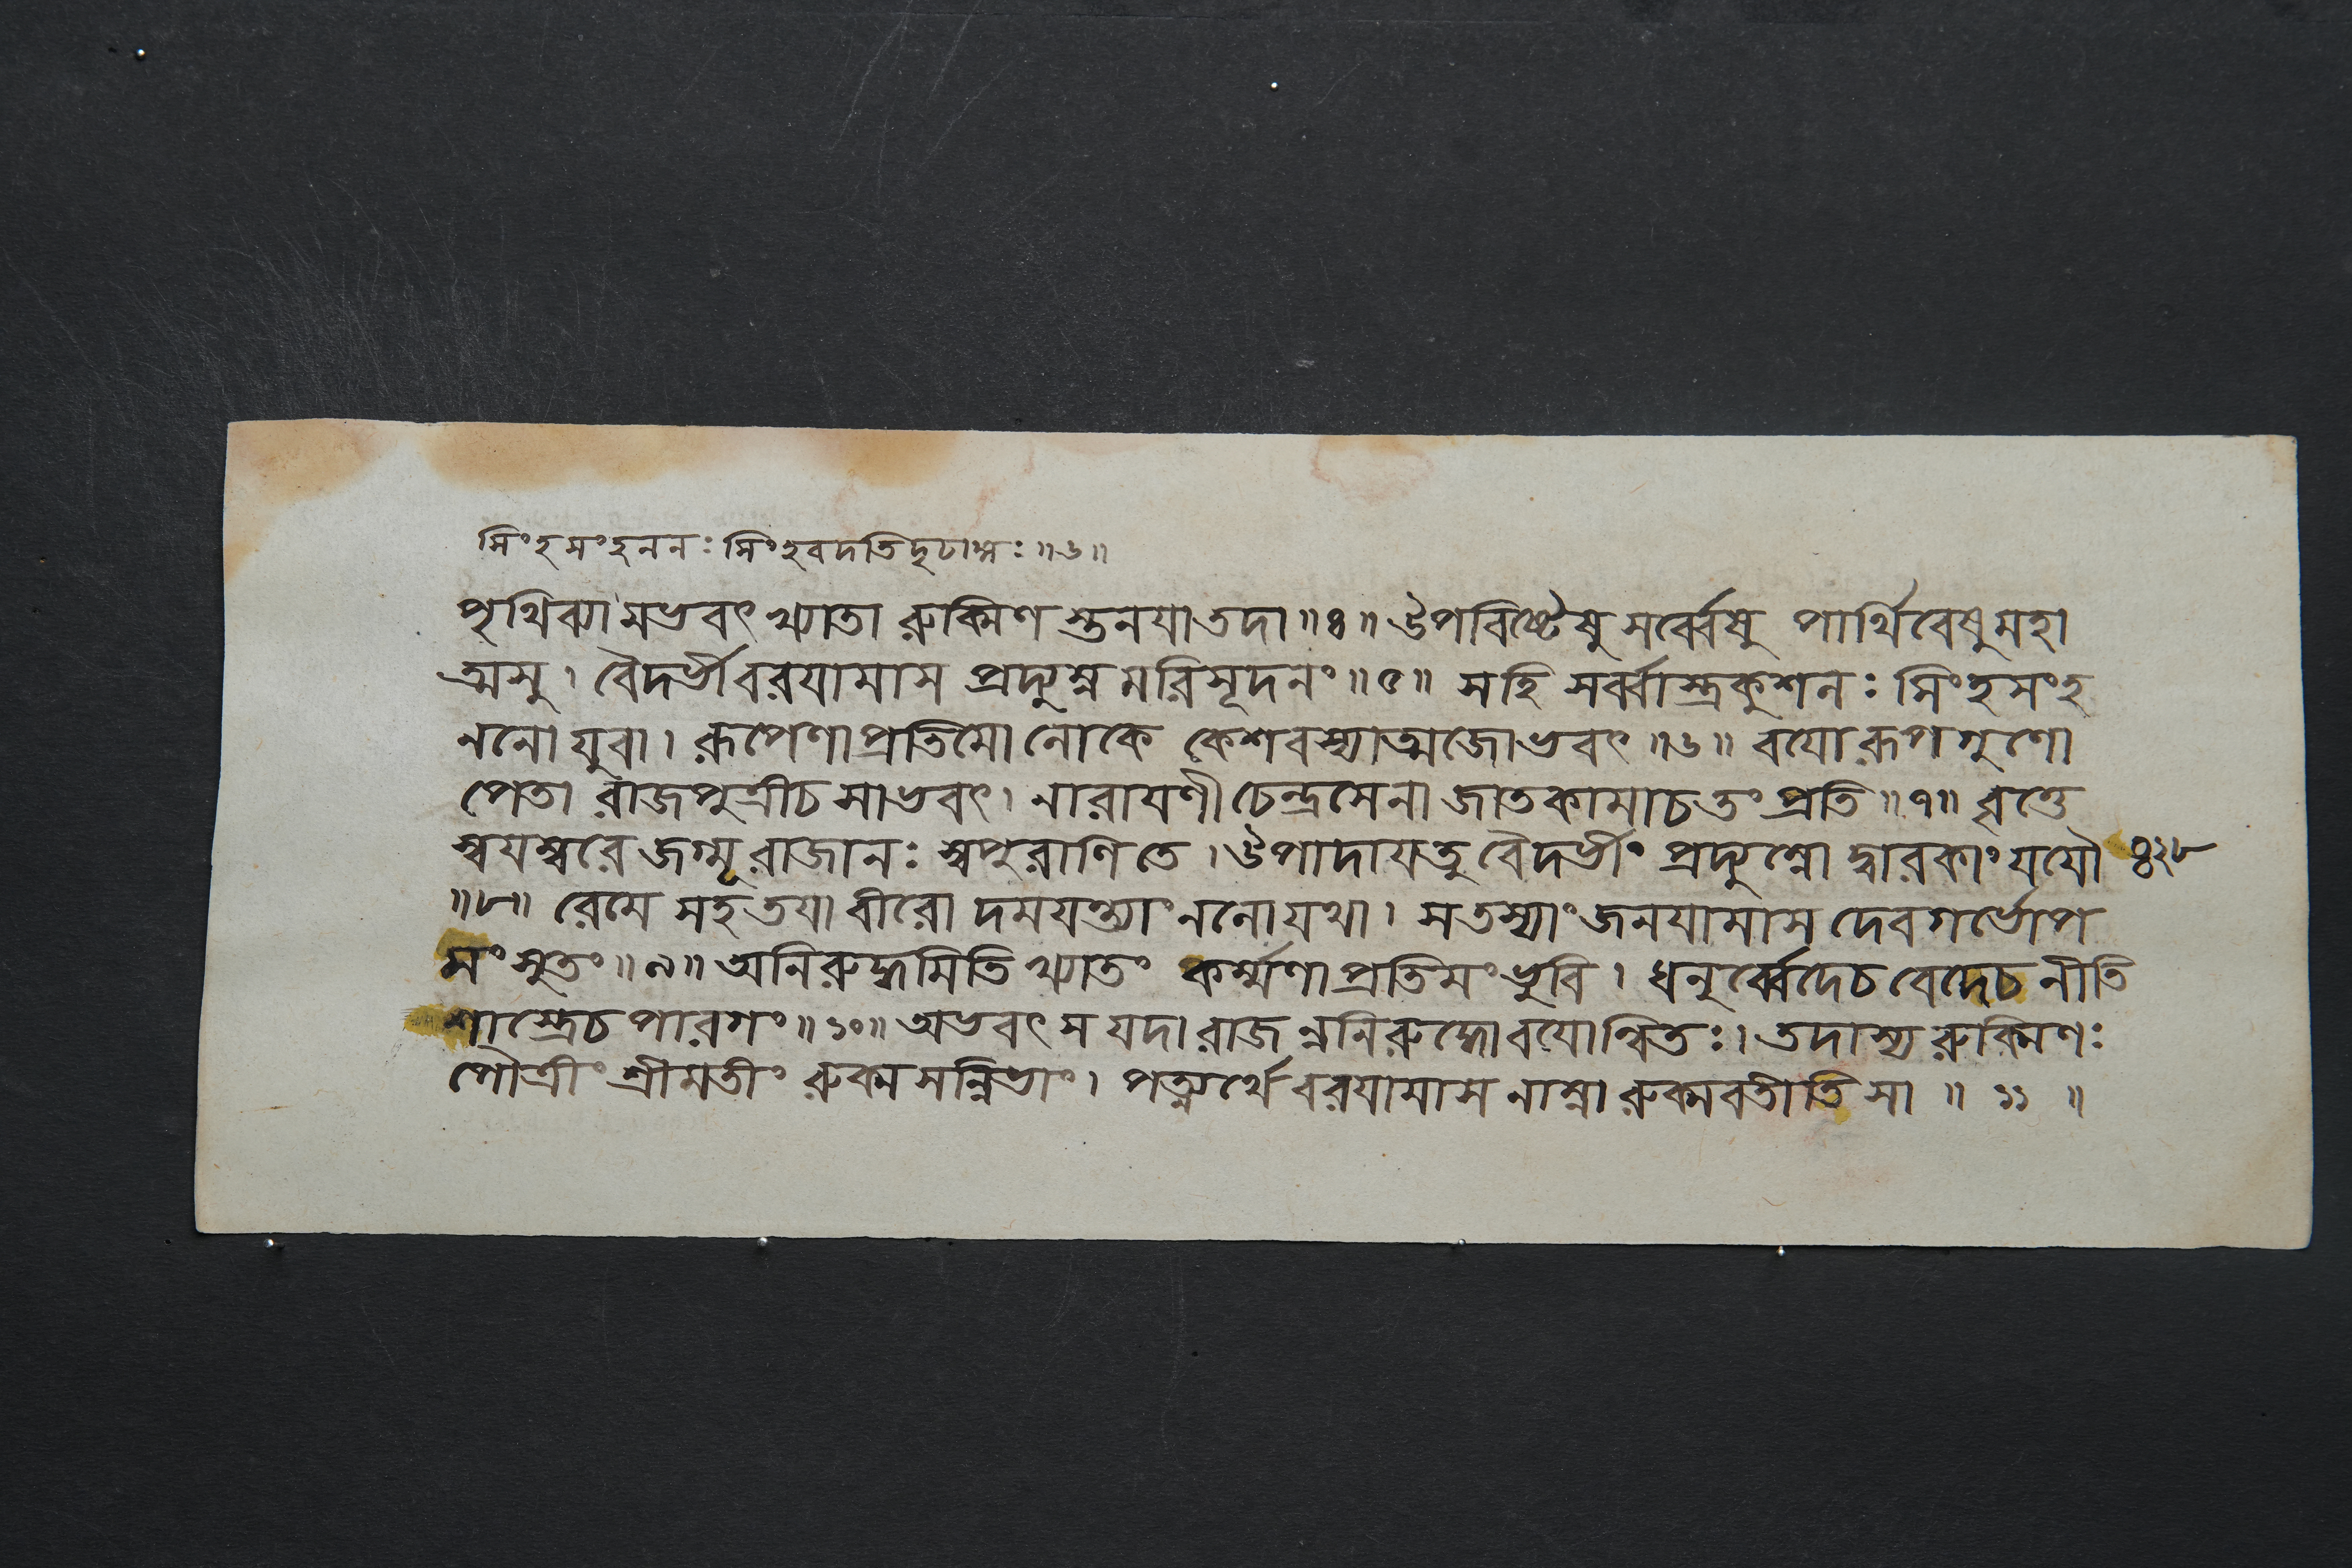 সিংহসংহননঃ সিংহবদতিদৃঢাঙ্গঃ ॥৬॥
পৃথিব্যামভবৎ খ্যাতা রুক্মিণ স্তনযাতদা ॥৪॥ ঔপবিষ্টেষু সর্ব্বেষু পার্থিবেষুমহা
ত্মসু। বৈদর্ভীবরযামাস প্রদ্যুম্ন মরিসূদনং ॥৫॥ সহি সর্ব্বাস্ত্রকুশলঃ সিংহসংহ
ননো যুবা। রূপেণাপ্রতিমো লোকে কেশবস্যাত্মজোভবৎ ॥৬॥ বযোরূপগুণো
পেতা রাজপুত্রীচ সাভবৎ। নারাযণী চেন্দ্রসেনা জাতকামাচতং প্রতি ॥৭॥ বৃত্তে
স্বযম্বরে জগ্মূ রাজানঃ স্বপুরাণি তে। ঔপাদাযতু বৈদর্ভীং প্রদ্যুম্নো দ্বারকাং যযৌ ৪২৮
॥৮॥ রেমে সহতযা বীরো দমযন্ত্যাং নলোযথা। সতস্যাং জনযামাস দেবগর্ভোপ
মং সুতং ॥৯॥ অনিরুদ্ধমিতি খ্যাতং কর্ম্মণাপ্রতিমং ভুবি। ধনুর্ব্বেদেচ বেদেচ নীতি
শাস্ত্রেচ পারগং ॥১০॥ অভবৎ স যদা রাজ ন্ননিরুদ্ধোবযোন্বিতঃ। তদাস্য রুক্মিণঃ
পৌত্রীং শ্রীমতীং রুক্মসন্নিভাং। পত্ন্যর্থে বরযামাস নাম্না রুক্মবতীতি সা ॥ ১১ ॥